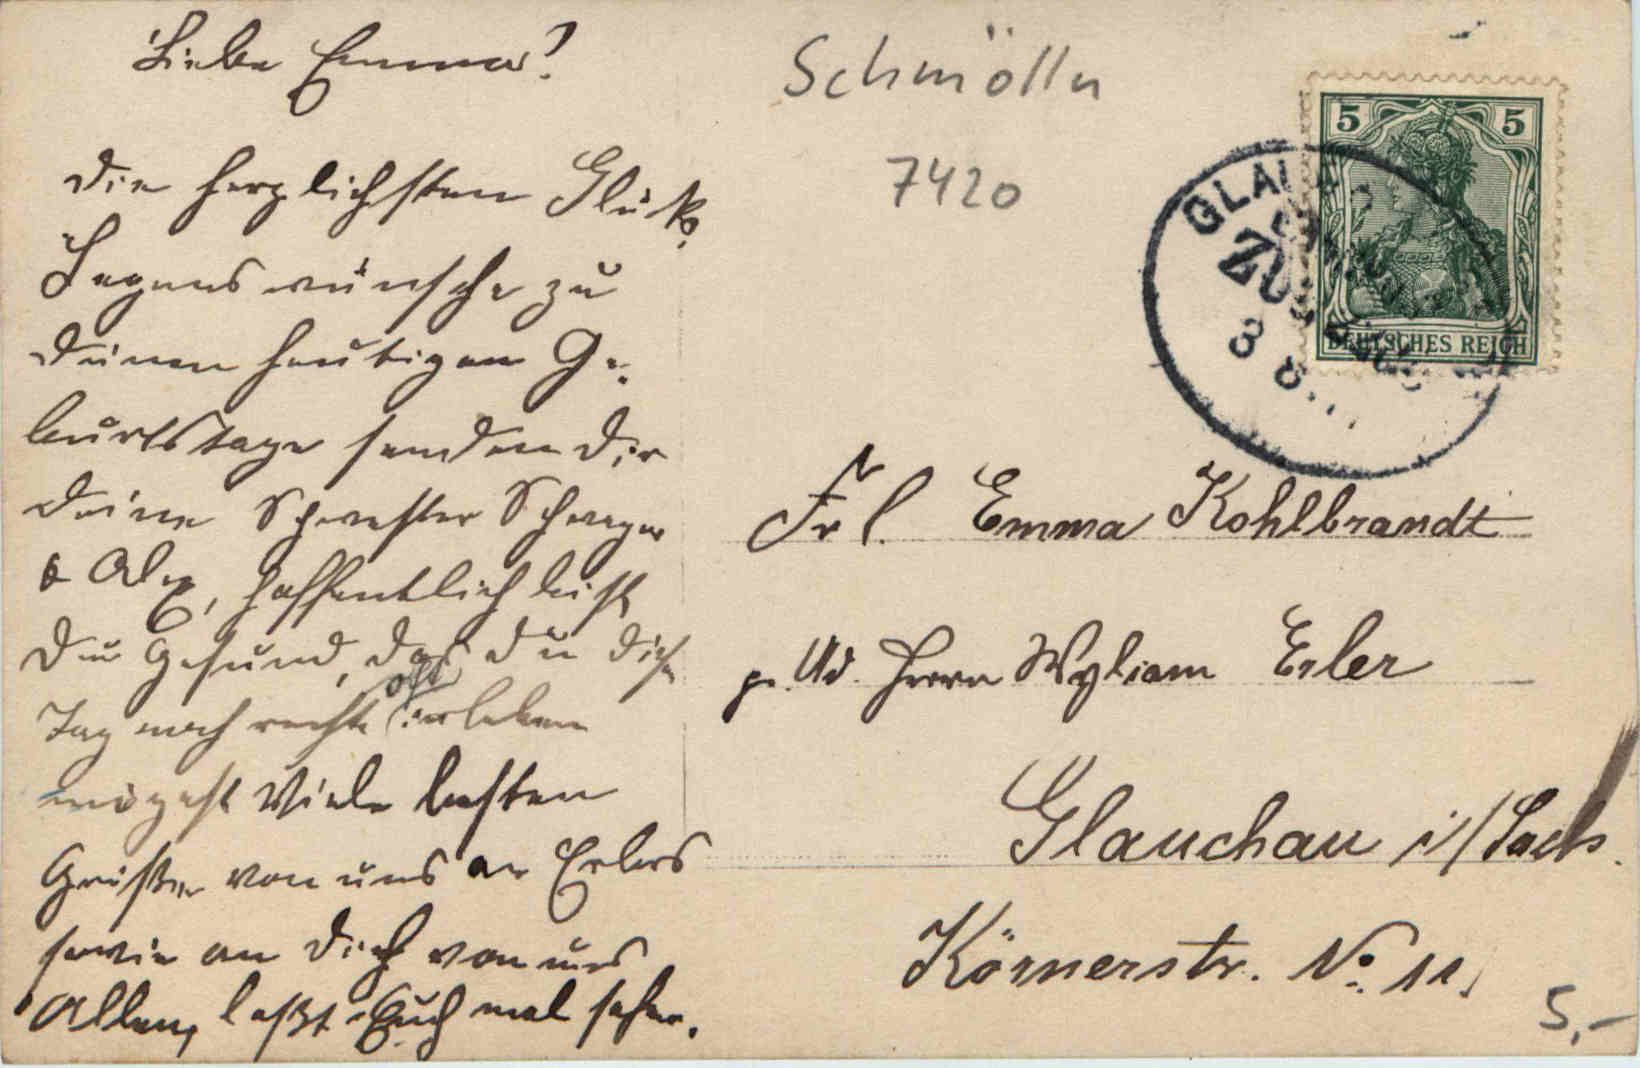 Liebe Emma!
Die herzlichsten Glück-
Segenswünsche zu
Deinem heutigen Ge-
burtstage senden Dir
Deine Schwester Schwager
& Alex, hoffentlich bist
Du Gesund, daß du diesen
oft
Tag noch recht erleben
mögest Viele besten
Grüße von uns an Erlers
sowie an Dich von uns
Allen, laßt Euch mal sehen.
Schmölln
7420
5 5
DEUTSCHES REICH
GLAUC
ZUG
8 8
Frl. Emma Kohlbrandt
pr. Ad. Herrn Wyliam Erler
Glauchau i/Sachs.
Körnerstr. No. 11.
5,-